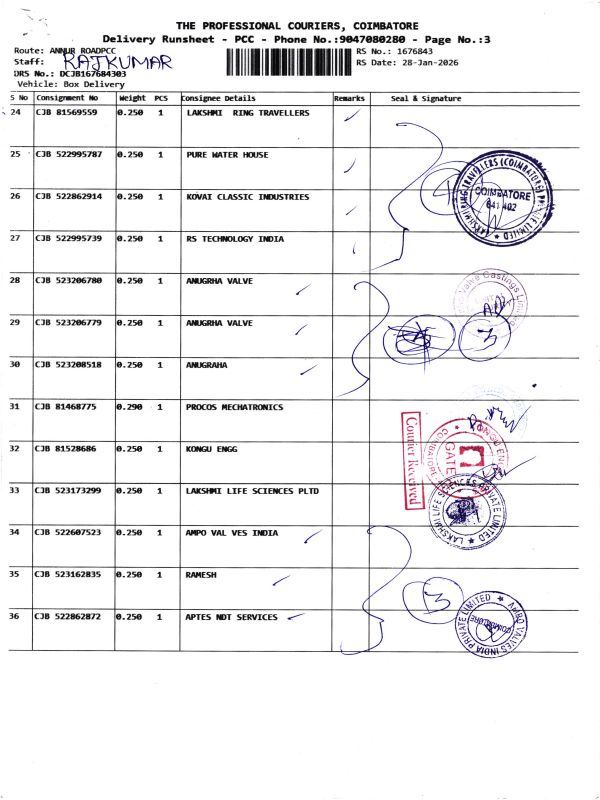 THE PROFESSIONAL COURIERS, COIMBATORE
Delivery Runsheet - PCC - Phone No.:9047080280 - Page No.:3
Route: ANNUR ROADPCC
RS No.: 1676843
Staff: RAJKUMAR
RS Date: 28-Jan-2026
DRS No.: DCJB167684303
Vehicle: Box Delivery
S No Consignment No Weight PCS Consignee Details Remarks Seal & Signature
24 CJB 81569559 0.250 1 LAKSHMI RING TRAVELLERS
25 CJB 522995787 0.250 1 PURE WATER HOUSE
26 CJB 522862914 0.250 1 KOVAI CLASSIC INDUSTRIES
27 CJB 522995739 0.250 1 RS TECHNOLOGY INDIA
4
LAKSHMI RING TRAVELLERS (COIMBATORE) PRIVATE LIMITED
COIMBATORE
641 402
28 CJB 523206780 0.250 1 ANUGRHA VALVE
29 CJB 523206779 0.250 1 ANUGRHA VALVE
30 CJB 523208518 0.250 1 ANUGRAHA
3
Valve Castings Limited
31 CJB 81468775 0.290 1 PROCOS MECHATRONICS
32 CJB 81528686 0.250 1 KONGU ENGG
Courier Received
KONGU ENGG
GATE
COIMBATORE
33 CJB 523173299 0.250 1 LAKSHMI LIFE SCIENCES PLTD
LAKSHMI LIFE SCIENCES PRIVATE LIMITED
34 CJB 522607523 0.250 1 AMPO VAL VES INDIA
35 CJB 523162835 0.250 1 RAMESH
36 CJB 522862872 0.250 1 APTES NDT SERVICES
3
AMPO VALVES INDIA PRIVATE LIMITED
COIMBATORE